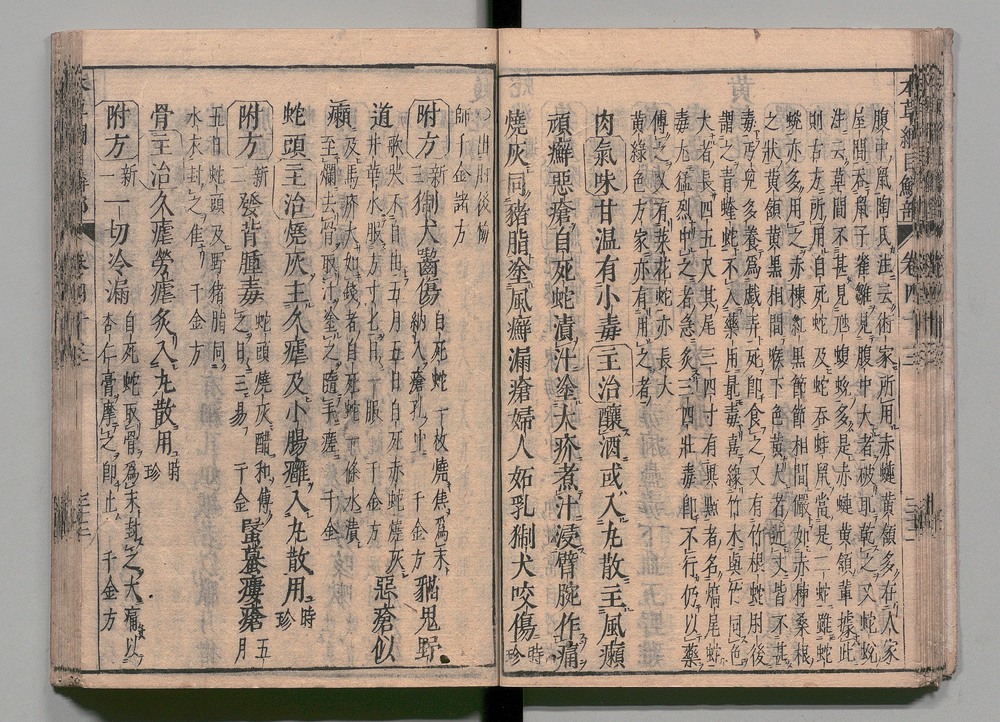 腹中鼠陶氏註云術家所用赤蛇黃頷多在人家
屋間吞鼠子雀雛見腹中大者破取乾之又蛇蛻
註云草間不甚見虺蝮蛻多是赤蛇黃頷輩據此
則古方所用自死蛇及蛇吞蛙鼠當是二蛇雖蛇
蛻亦多用之赤楝紅黑節節相間儼如赤楝桑根
之狀黃頷黃黑相間喉下色黃大者近丈皆不甚
毒丐兒多養爲戲弄死即食之又有竹根蛇用後
謂之青蝰蛇不入藥用最毒喜緣竹木與竹同色
大者長四五尺其尾三四寸有異點者名熇尾蛇
毒尤猛烈中之者急灸三四壯毒即不行仍以藥
傅之又有菜花蛇亦長大
黃綠色方家亦有用之者
肉氣味甘溫有小毒主治釀酒或入丸散主風癩
頑癬惡瘡自死蛇漬汁塗大疥煮汁浸臂腕作痛
燒灰同豬脂塗風癬漏瘡婦人妬乳猘犬咬傷時珍
肘後
師千金諸方
附方新三猘犬齧傷自死蛇一枚燒焦爲末納入瘡孔中千金方貓鬼野
道歌哭不自由五月五日自死赤蛇燒灰井華水服方寸匕日一服千金方惡瘡似
癩及馬疥大如錢者自死蛇一條水漬至爛去骨取汁塗之隨手瘥千金
蛇頭主治燒灰主久瘧及小腸癰入丸散用時珍
附方新二發背腫毒蛇頭燒灰醋和傅之日三易千金蜃蟇瘻瘡五月
五日蛇頭及野豬脂同
水衣封之佳千金方
骨主治久瘧勞瘧炙入丸散用時珍
附方新一一切冷漏自死蛇取骨爲末封之大痛以杏仁膏摩之即止千金方